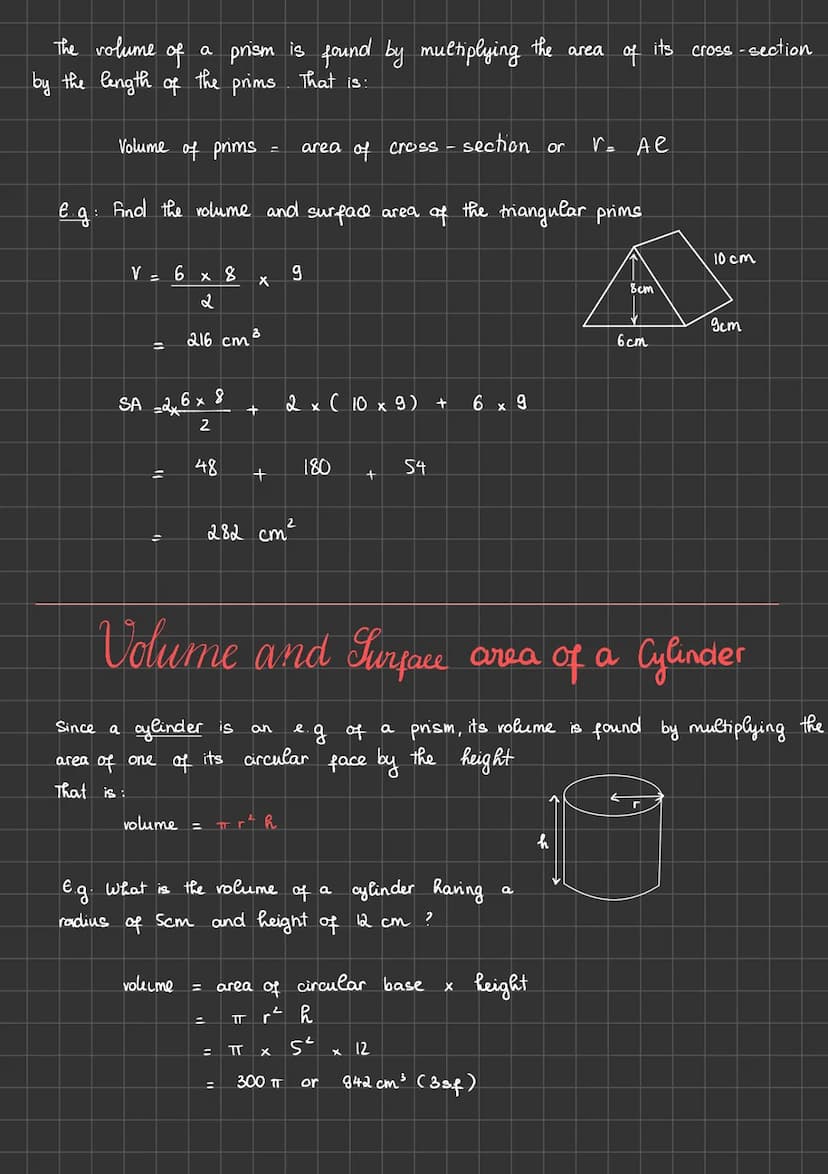 The volume of a prism is found by multiplying the area of its cross-section
by the length of the prims. That is:
Volume of prims = area of cross-section or V = Al
e.g: Find the volume and surface area of the triangular prims
V = 6 × 8 / 2 × 9
= 216 cm³
10 cm
8cm
9cm
6cm
SA = 2 × 6 × 8 / 2 + 2 × ( 10 × 9 ) + 6 × 9
= 48 + 180 + 54
= 282 cm²
Volume and Surface area of a Cylinder
Since a cylinder is an e.g of a prism, its volume is found by multiplying the
area of one of its circular face by the height
That is:
volume = π r² h
r
h
E.g. What is the volume of a cylinder having a
radius of 5cm and height of 12 cm ?
volume = area of circular base × height
= π r² h
= π × 5² × 12
= 300 π or 942 cm³ (3sf)